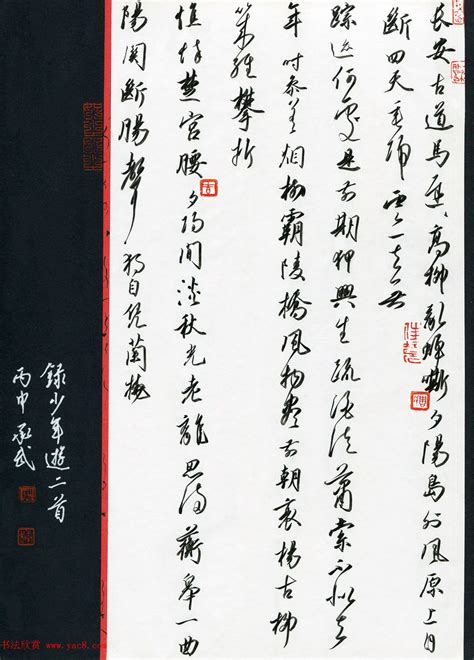 長安古道馬遲遲高柳亂蟬嘶夕陽島外風原上目
斷四天垂歸雲一去無
蹤迹何處是前期狎興生疏酒徒蕭索不似去
年時參差烟樹霸陵橋風物盡前朝衰楊古柳
幾經攀折
憔悴楚宮腰夕陽閒淡秋光老離思滿蘅皋一曲
陽關斷腸聲獨自凭蘭橈
錄少年遊二首
丙申 承武
书法欣赏 www.yac8.com